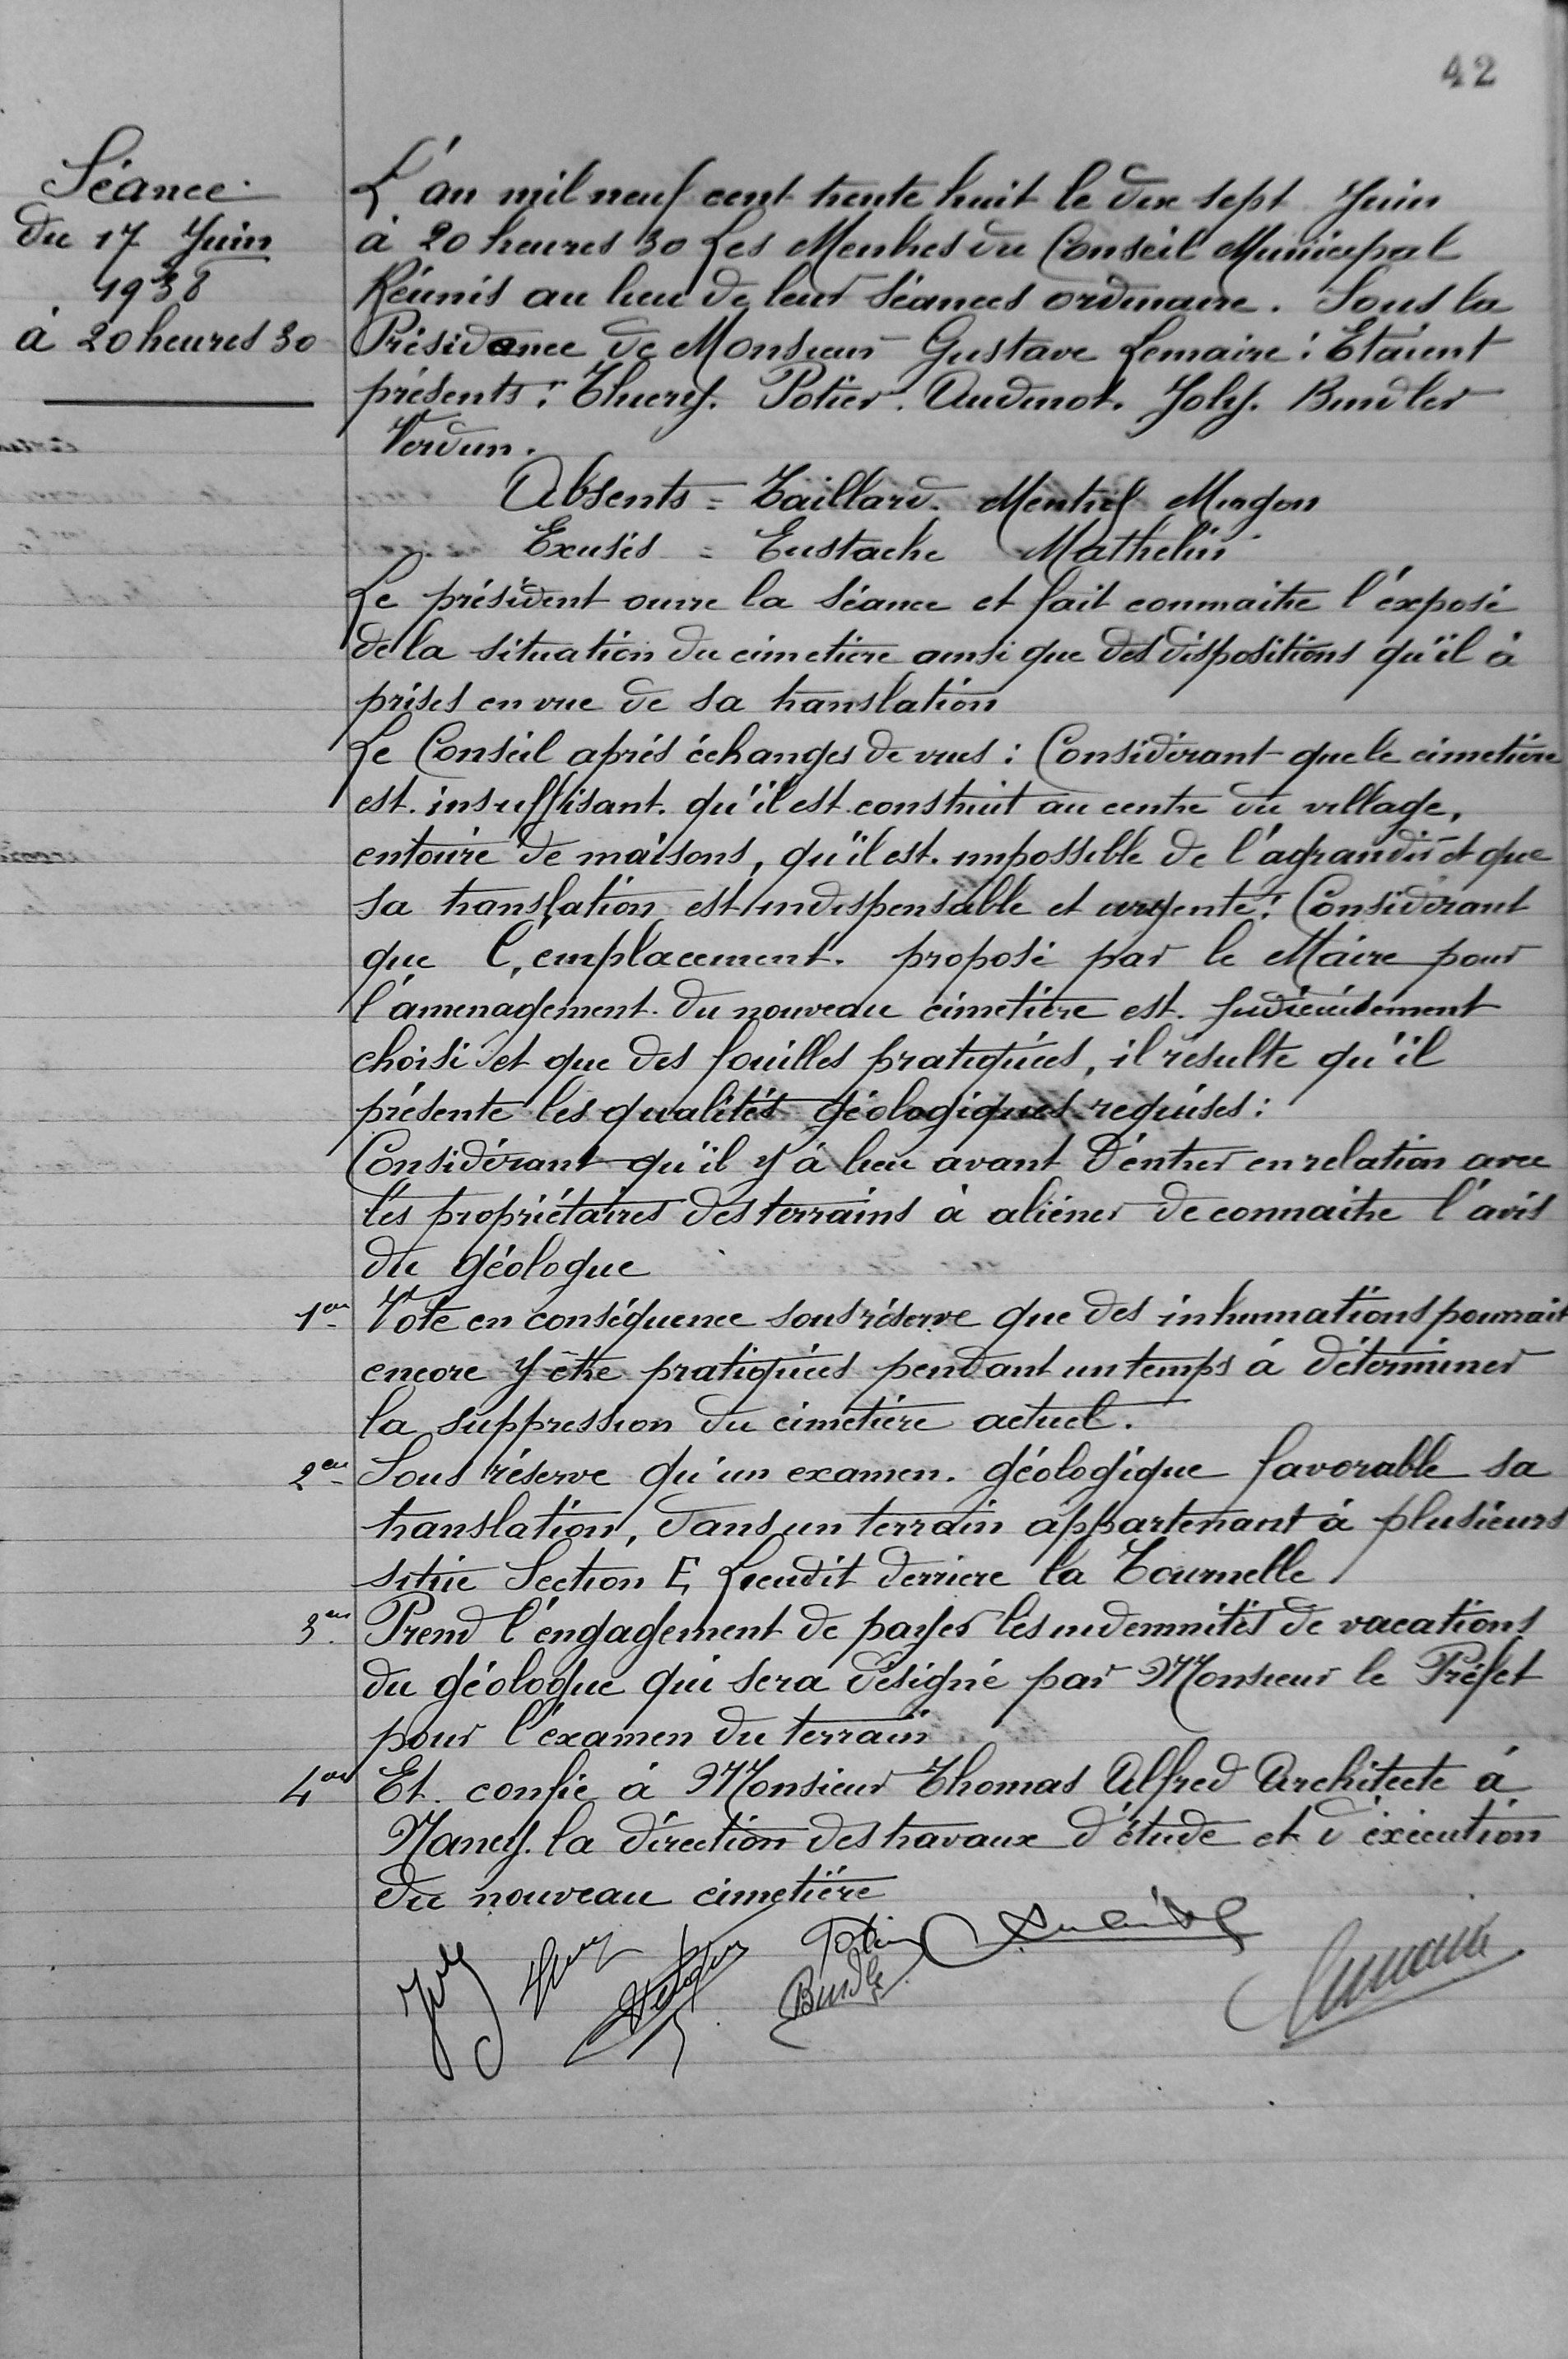 42
Séance
du 17 Juin
1938
à 20 heures 30
L'an mil neuf cent trente huit le dix sept Juin
à 20 heures 30 Les Membres du Conseil Municipal
Réunis au lieu de leur Séances ordinaire. Sous la
Présidence de Monsieur Gustave Lemaire : Etaient
présents : Thiery. Potier. Audinot. Joly. Bindler
Verdun.
Absents = Taillard. Mentrel Mingon
Exusés = Eustache Mathelin
Le président ouvre la séance et fait connaitre l'éxposé
de la situation du cimetière ainsi que des dispositions qu'il à
prises en vue de sa translation
Le Conseil aprés échanges de vues : Considérant que le cimetière
est insuffisant. qu'il est construit au centre du village,
entouré de maisons, qu'il est impossible de l'agrandir et que
sa translation est indispensable et urgente : Considérant
que l'emplacement. proposé par le Maire pour
l'aménagement du nouveau cimetière est judicieusement
choisi et que des fouilles pratiquées, il résulte qu'il
présente les qualités géologiques requises :
Considérant qu'il y à lieu avant d'éntrer en relation avec
lés propriétaires des terrains à aliéner de connaitre l'avis
du géologue
1er Vote en conséquence sous réserve que des inhumations pourrait
encore y être pratiquées pendant un temps à déterminer
la suppression du cimetière actuel.
2em Sous réserve qu'un examen. géologique favorable sa
translation, dans un terrain appartenant à plusieurs
situé Section E, Lieudit derriere la Tournelle
3em Prend l'éngagement de payer lés indemnités de vacations
du géologue qui sera désigné par Monsieur le Préfet
pour l'éxamen du terrain
4em Et. confie à Monsieur Thomas Alfred Architecte à
Nancy. la direction des travaux d'étude et d'éxécution
du nouveau cimetière
Joly Potier
Bindler Lemaire